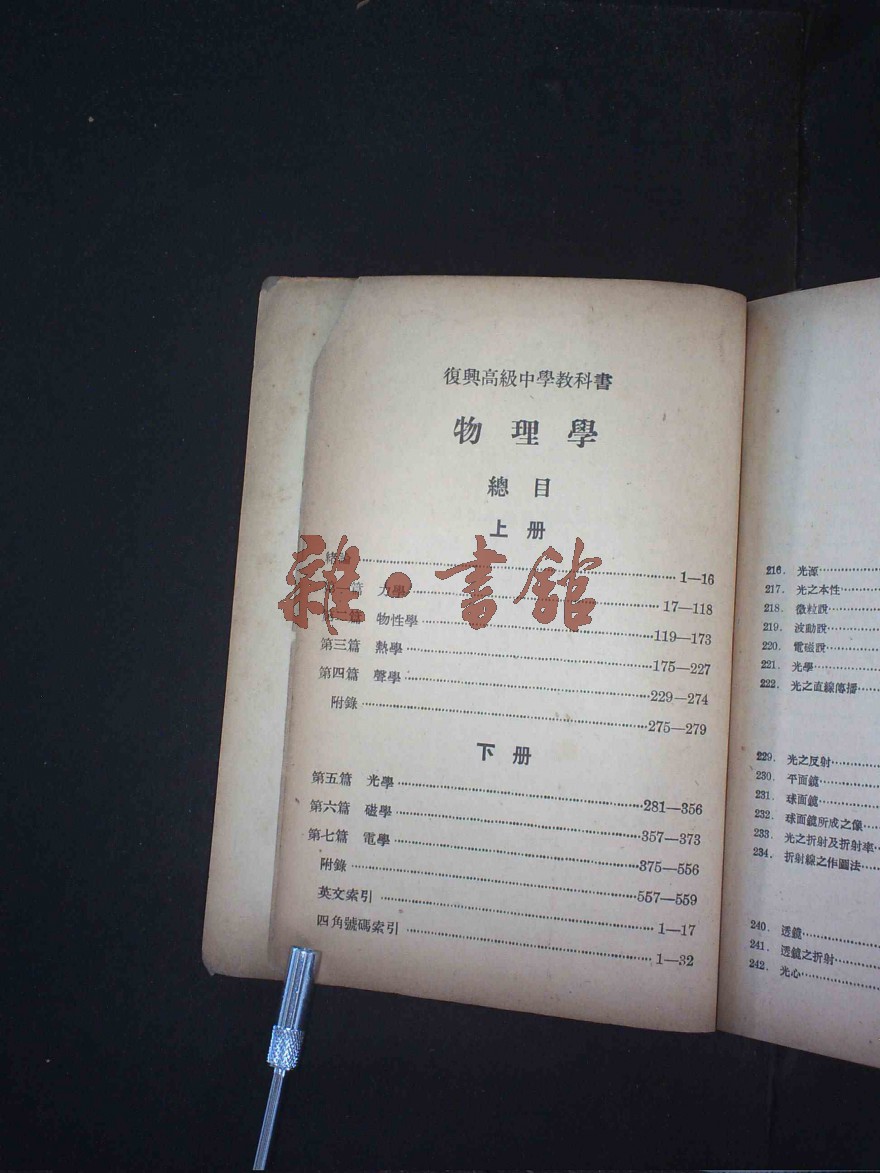 復興高級中學教科書
物理學
總目
上册
緒論 1—16
第一篇 力學 17—118
第二篇 物性學 119—173
第三篇 熱學 175—227
第四篇 聲學 229—274
附錄 275—279
下册
第五篇 光學 281—356
第六篇 磁學 357—373
第七篇 電學 375—556
附錄 557—559
英文索引 1—17
四角號碼索引 1—32
雜·書館
216. 光源
217. 光之本性
218. 微粒說
219. 波動說
220. 電磁說
221. 光學
222. 光之直線傳播
229. 光之反射
230. 平面鏡
231. 球面鏡
232. 球面鏡所成之像
233. 光之折射及折射率
234. 折射線之作圖法
240. 透鏡
241. 透鏡之折射
242. 光心